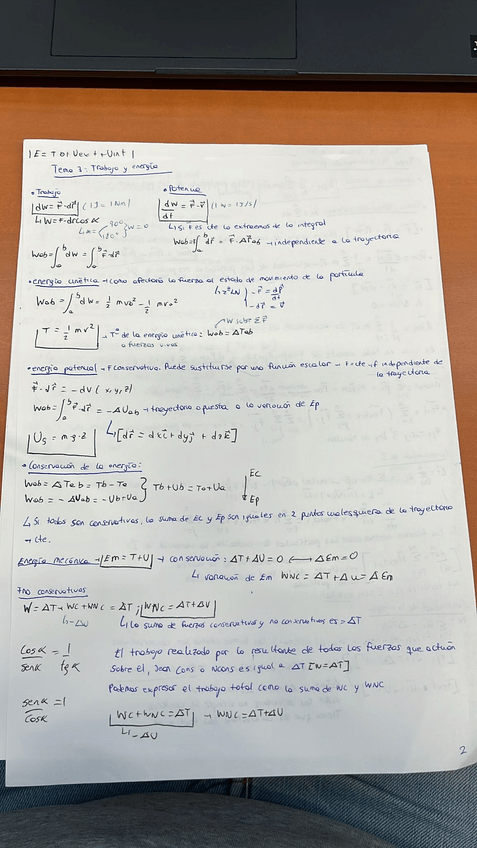 |E = T01 Uext + Uint|
Tema 3: Trabajo y energía
• Trabajo
|dW = F⃗·dr⃗| (1J = 1Nm)
↳ W = F·dr cos α
↳ α = 90° } W = 0
Wab = ∫ₐᵇ dW = ∫ₐᵇ F⃗·dr⃗
• Potencia
|dW/dt = F⃗·v⃗| (1W = 1J/s)
↳ Si F es cte la extraemos de la integral
Wab = F⃗ ∫ₐᵇ dr⃗ = F⃗·Δr⃗ab → independiente a la trayectoria
• energía cinética → como afectaría la fuerza al estado de movimiento de la partícula
Wab = ∫ₐᵇ dW = 1/2 mvb² - 1/2 mva²
↳ 2ª LN { - F⃗ = dp⃗/dt
- dr⃗/dt = v⃗
|T = 1/2 mv²| → Tª de la energía cinética: Wab = ΔTab
o fuerzas vivas
→ Wab = ΣF⃗
• energía potencial → F conservativa. Puede sustituirse por una función escalar → F = cte → F independiente de
la trayectoria
F⃗·dr⃗ = -dU (x, y, z)
Wab = ∫ₐᵇ F⃗·dr⃗ = -ΔUab → trayectoria opuesta a la variación de Ep
↳ [dr⃗ = dxi⃗ + dyj⃗ + dzk⃗]
|Ug = m·g·z|
• Conservación de la energía:
Wab = ΔTab = Tb - Ta
Wab = -ΔUab = -Ub + Ua } Tb + Ub = Ta + Ua
Ec
↓
Ep
↳ Si todas son conservativas, la suma de Ec y Ep son iguales en 2 puntos cualesquiera de la trayectoria
→ cte.
Energía mecánica → |Em = T+U| → conservación: ΔT + ΔU = 0 ⟷ ΔEm = 0
↳ variación de Em WNC = ΔT + ΔU = ΔEm
no conservativas
W = ΔT → WC + WNC = ΔT; |WNC = ΔT + ΔU|
↳ -ΔU
↳ La suma de fuerzas conservativas y no conservativas es = ΔT
cos α/sen α = 1/tg α
El trabajo realizado por la resultante de todas las fuerzas que actúan
sobre él, sean Cons o Ncons es igual a ΔT [W = ΔT]
Podemos expresar el trabajo total como la suma de WC y WNC
sen α/cos α = 1
|WC + WNC = ΔT| → WNC = ΔT + ΔU
↳ -ΔU
2